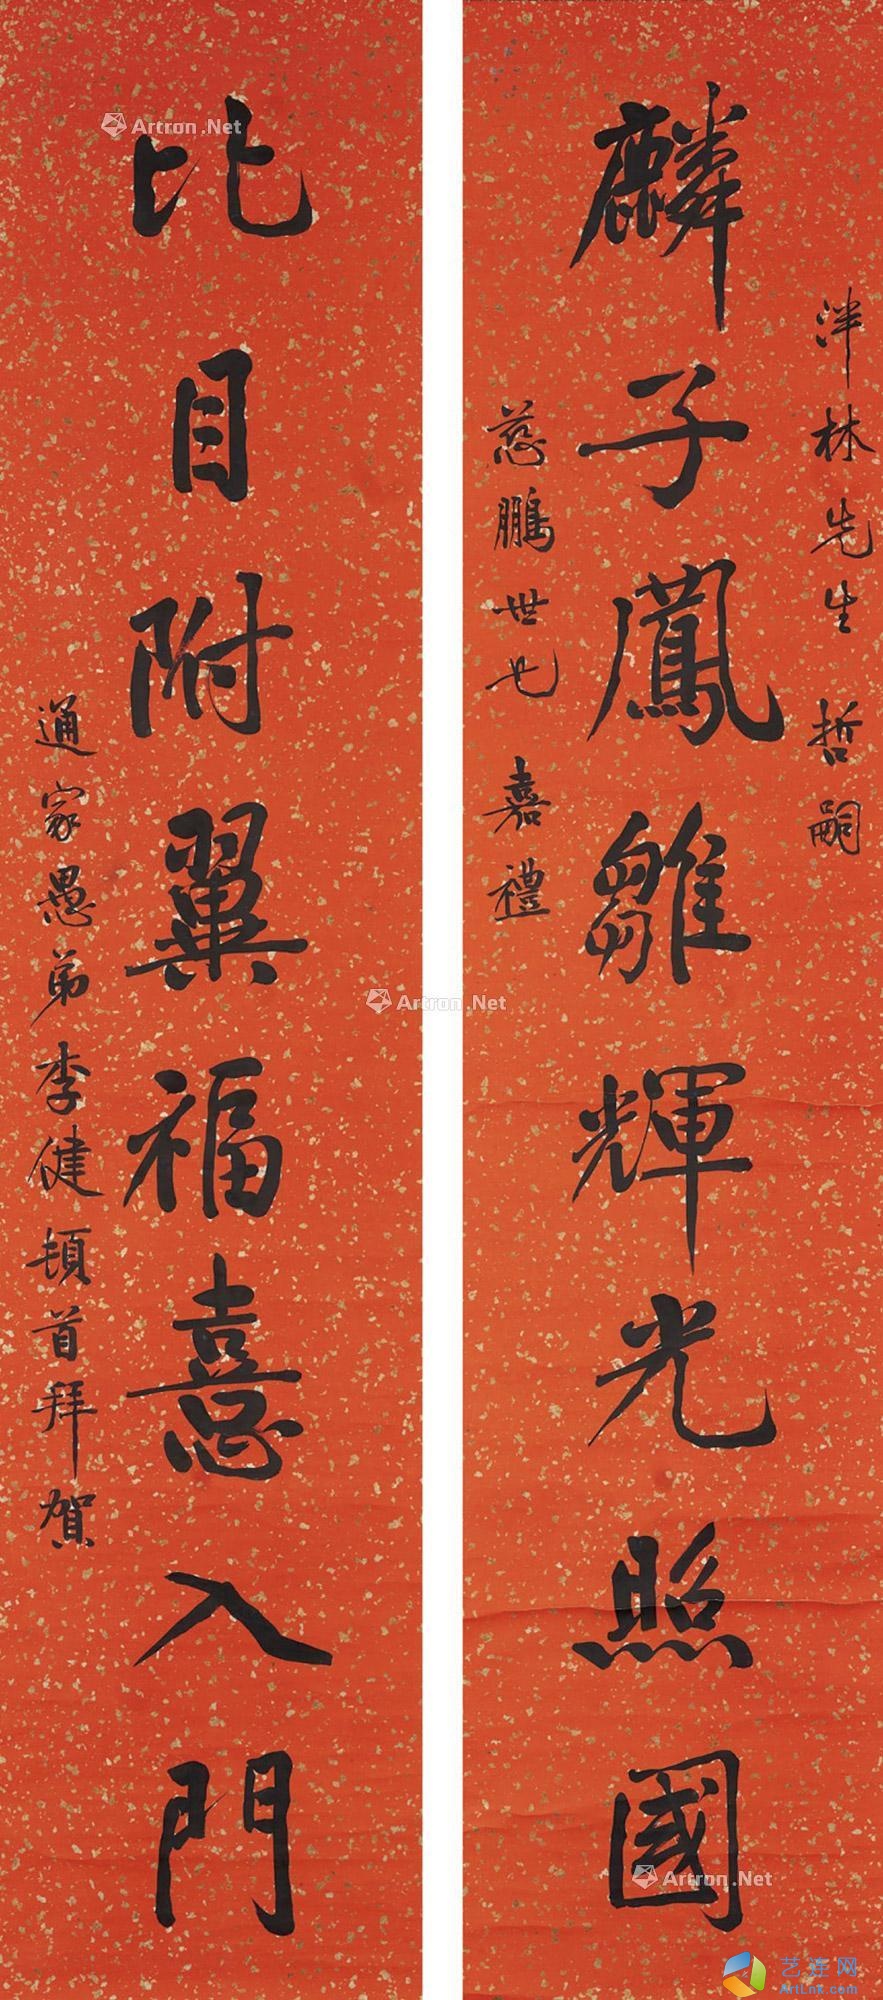 泮林先生 哲嗣
麟子鳳雛輝光照國
慈鵬世兄 嘉禮
比目附翼福憙入門
通家愚弟李健頓首拜賀
Artron.Net
Artron.Net
Artron.Net
ArtLnk.com